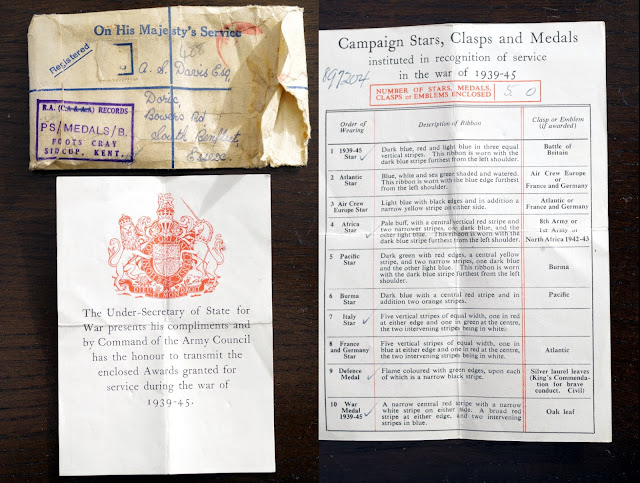 On His Majesty's Service
Registered
A. S. Davies Esq
Doric
Bowers Rd
South Benfleet
Essex
R.A. (C.A & A.A) RECORDS
PS/MEDALS/B.
FOOTS CRAY
SIDCUP, KENT.
DIEU ET MON DROIT
The Under-Secretary of State for
War presents his compliments and
by Command of the Army Council
has the honour to transmit the
enclosed Awards granted for
service during the war of
1939-45.
Campaign Stars, Clasps and Medals
instituted in recognition of service
in the war of 1939-45
897204
NUMBER OF STARS, MEDALS,
CLASPS or EMBLEMS ENCLOSED
5
Order of
Wearing
Description of Ribbon
Clasp or Emblem
(if awarded)
1 1939-45
Star
Dark blue, red and light blue in three equal
vertical stripes. This ribbon is worn with the
dark blue stripe furthest from the left shoulder.
Battle of
Britain
2 Atlantic
Star
Blue, white and sea green shaded and watered.
This ribbon is worn with the blue edge furthest
from the left shoulder.
Air Crew Europe
or
France and Germany
3 Air Crew
Europe Star
Light blue with black edges and in addition a
narrow yellow stripe on either side.
Atlantic or
France and Germany
4 Africa
Star
Pale buff, with a central vertical red stripe and
two narrower stripes, one dark blue, and the
other light blue. This ribbon is worn with the
dark blue stripe furthest from the left shoulder.
8th Army or
1st Army or
North Africa 1942-43
5 Pacific
Star
Dark green with red edges, a central yellow
stripe, and two narrow stripes, one dark blue
and the other light blue. This ribbon is worn
with the dark blue stripe furthest from the left
shoulder.
Burma
6 Burma
Star
Dark blue with a central red stripe and in
addition two orange stripes.
Pacific
7 Italy
Star
Five vertical stripes of equal width, one in red
at either edge and one in green at the centre,
the two intervening stripes being in white.
8 France
and Germany
Star
Five vertical stripes of equal width, one in
blue at either edge and one in red at the centre,
the two intervening stripes being in white.
Atlantic
9 Defence
Medal
Flame coloured with green edges, upon each
of which is a narrow black stripe.
Silver laurel leaves
(King's Commenda-
tion for brave
conduct. Civil)
10 War
Medal
1939-45
A narrow central red stripe with a narrow
white stripe on either side. A broad red
stripe at either edge, and two intervening
stripes in blue.
Oak leaf